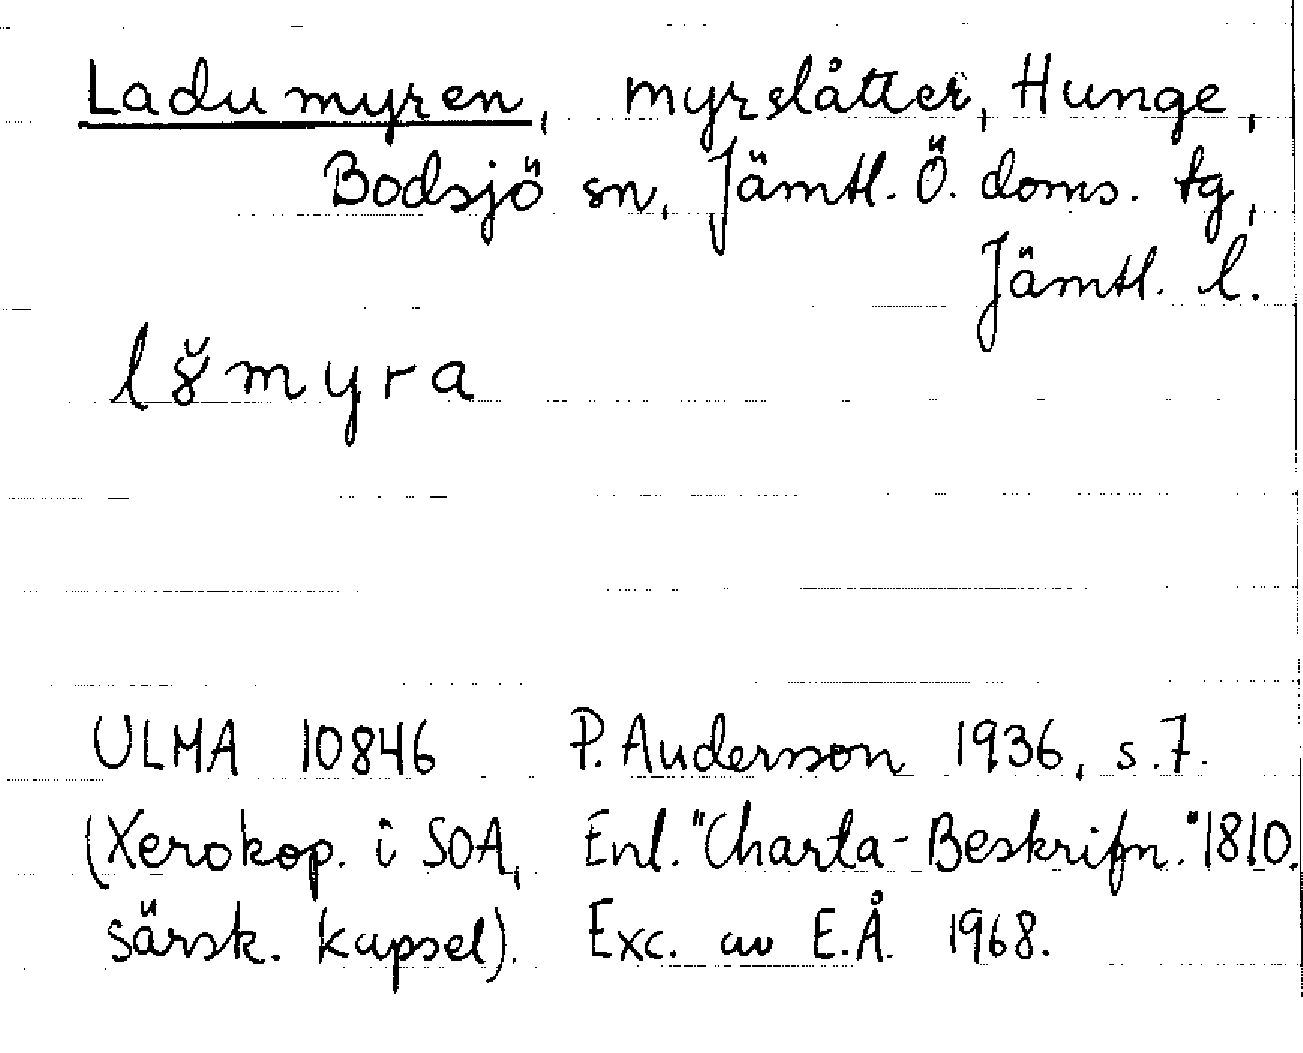 Ladumyren, myrslåtter, Hunge,
Bodsjö sn, Jämtl. Ö. doms. tg,
Jämtl. l.
l8̆myra
ULMA 10846 P. Andersson 1936, s. 7.
(Xerokop. i SOA, Enl. "Charta-Beskrifn." 1810.
särsk. kapsel). Exc. av E.Å. 1968.